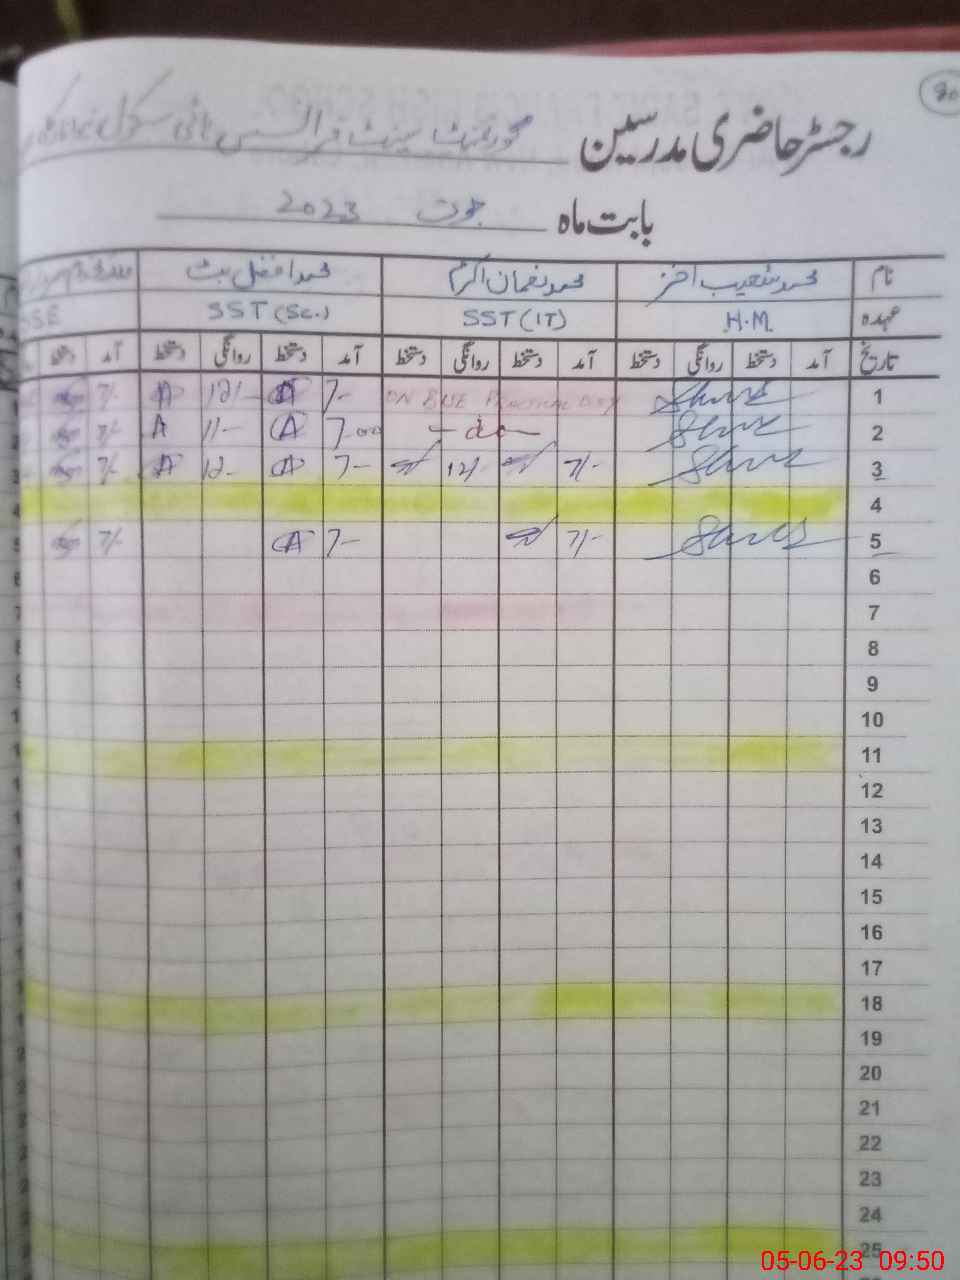 80
رجسٹر حاضری مدرسین گورنمنٹ سینٹ فرانسس ہائی سکول
بابت ماہ جون 2023
نام محمد شعیب اختر محمد نعمان اکرم محمد افضل بٹ
عہدہ H.M SST (IT) SST (Sc.) SSE
تاریخ آمد دستخط روانگی دستخط آمد دستخط روانگی دستخط آمد دستخط روانگی دستخط آمد دستخط
1 ON BISE PRACTICAL DUTY 7- A 12/- A 7/-
2 - do - 7-00 A 11- A 7/-
3 7/- 12/ 7- A 12- A 7/-
4
5 7/- 7- A 7/-
6
7
8
9
10
11
12
13
14
15
16
17
18
19
20
21
22
23
24
25
05-06-23 09:50